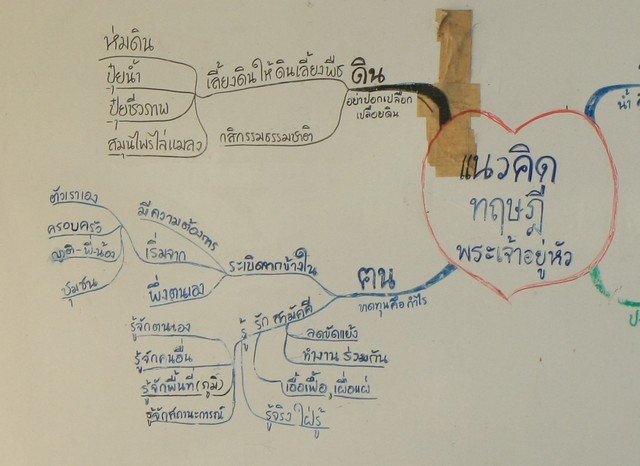 แนวคิด
ทฤษฎี
พระเจ้าอยู่หัว
ดิน
อย่าปอกเปลือก
เปลือยดิน
เลี้ยงดินให้ดินเลี้ยงพืช
กสิกรรมธรรมชาติ
ห่มดิน
ปุ๋ยน้ำ
ปุ๋ยชีวภาพ
สมุนไพรไล่แมลง
คน
ขาดทุนคือกำไร
ระเบิดจากข้างใน
มีความต้องการ
เริ่มจาก
พึ่งตนเอง
ตัวเราเอง
ครอบครัว
ญาติ-พี่น้อง
ชุมชน
รู้ รัก สามัคคี
ลดขัดแย้ง
ทำงานร่วมกัน
เอื้อเฟื้อ, เผื่อแผ่
รู้จริง ใฝ่รู้
รู้จักตนเอง
รู้จักคนอื่น
รู้จักพื้นที่(ภูมิ)
รู้จักสถานะการณ์